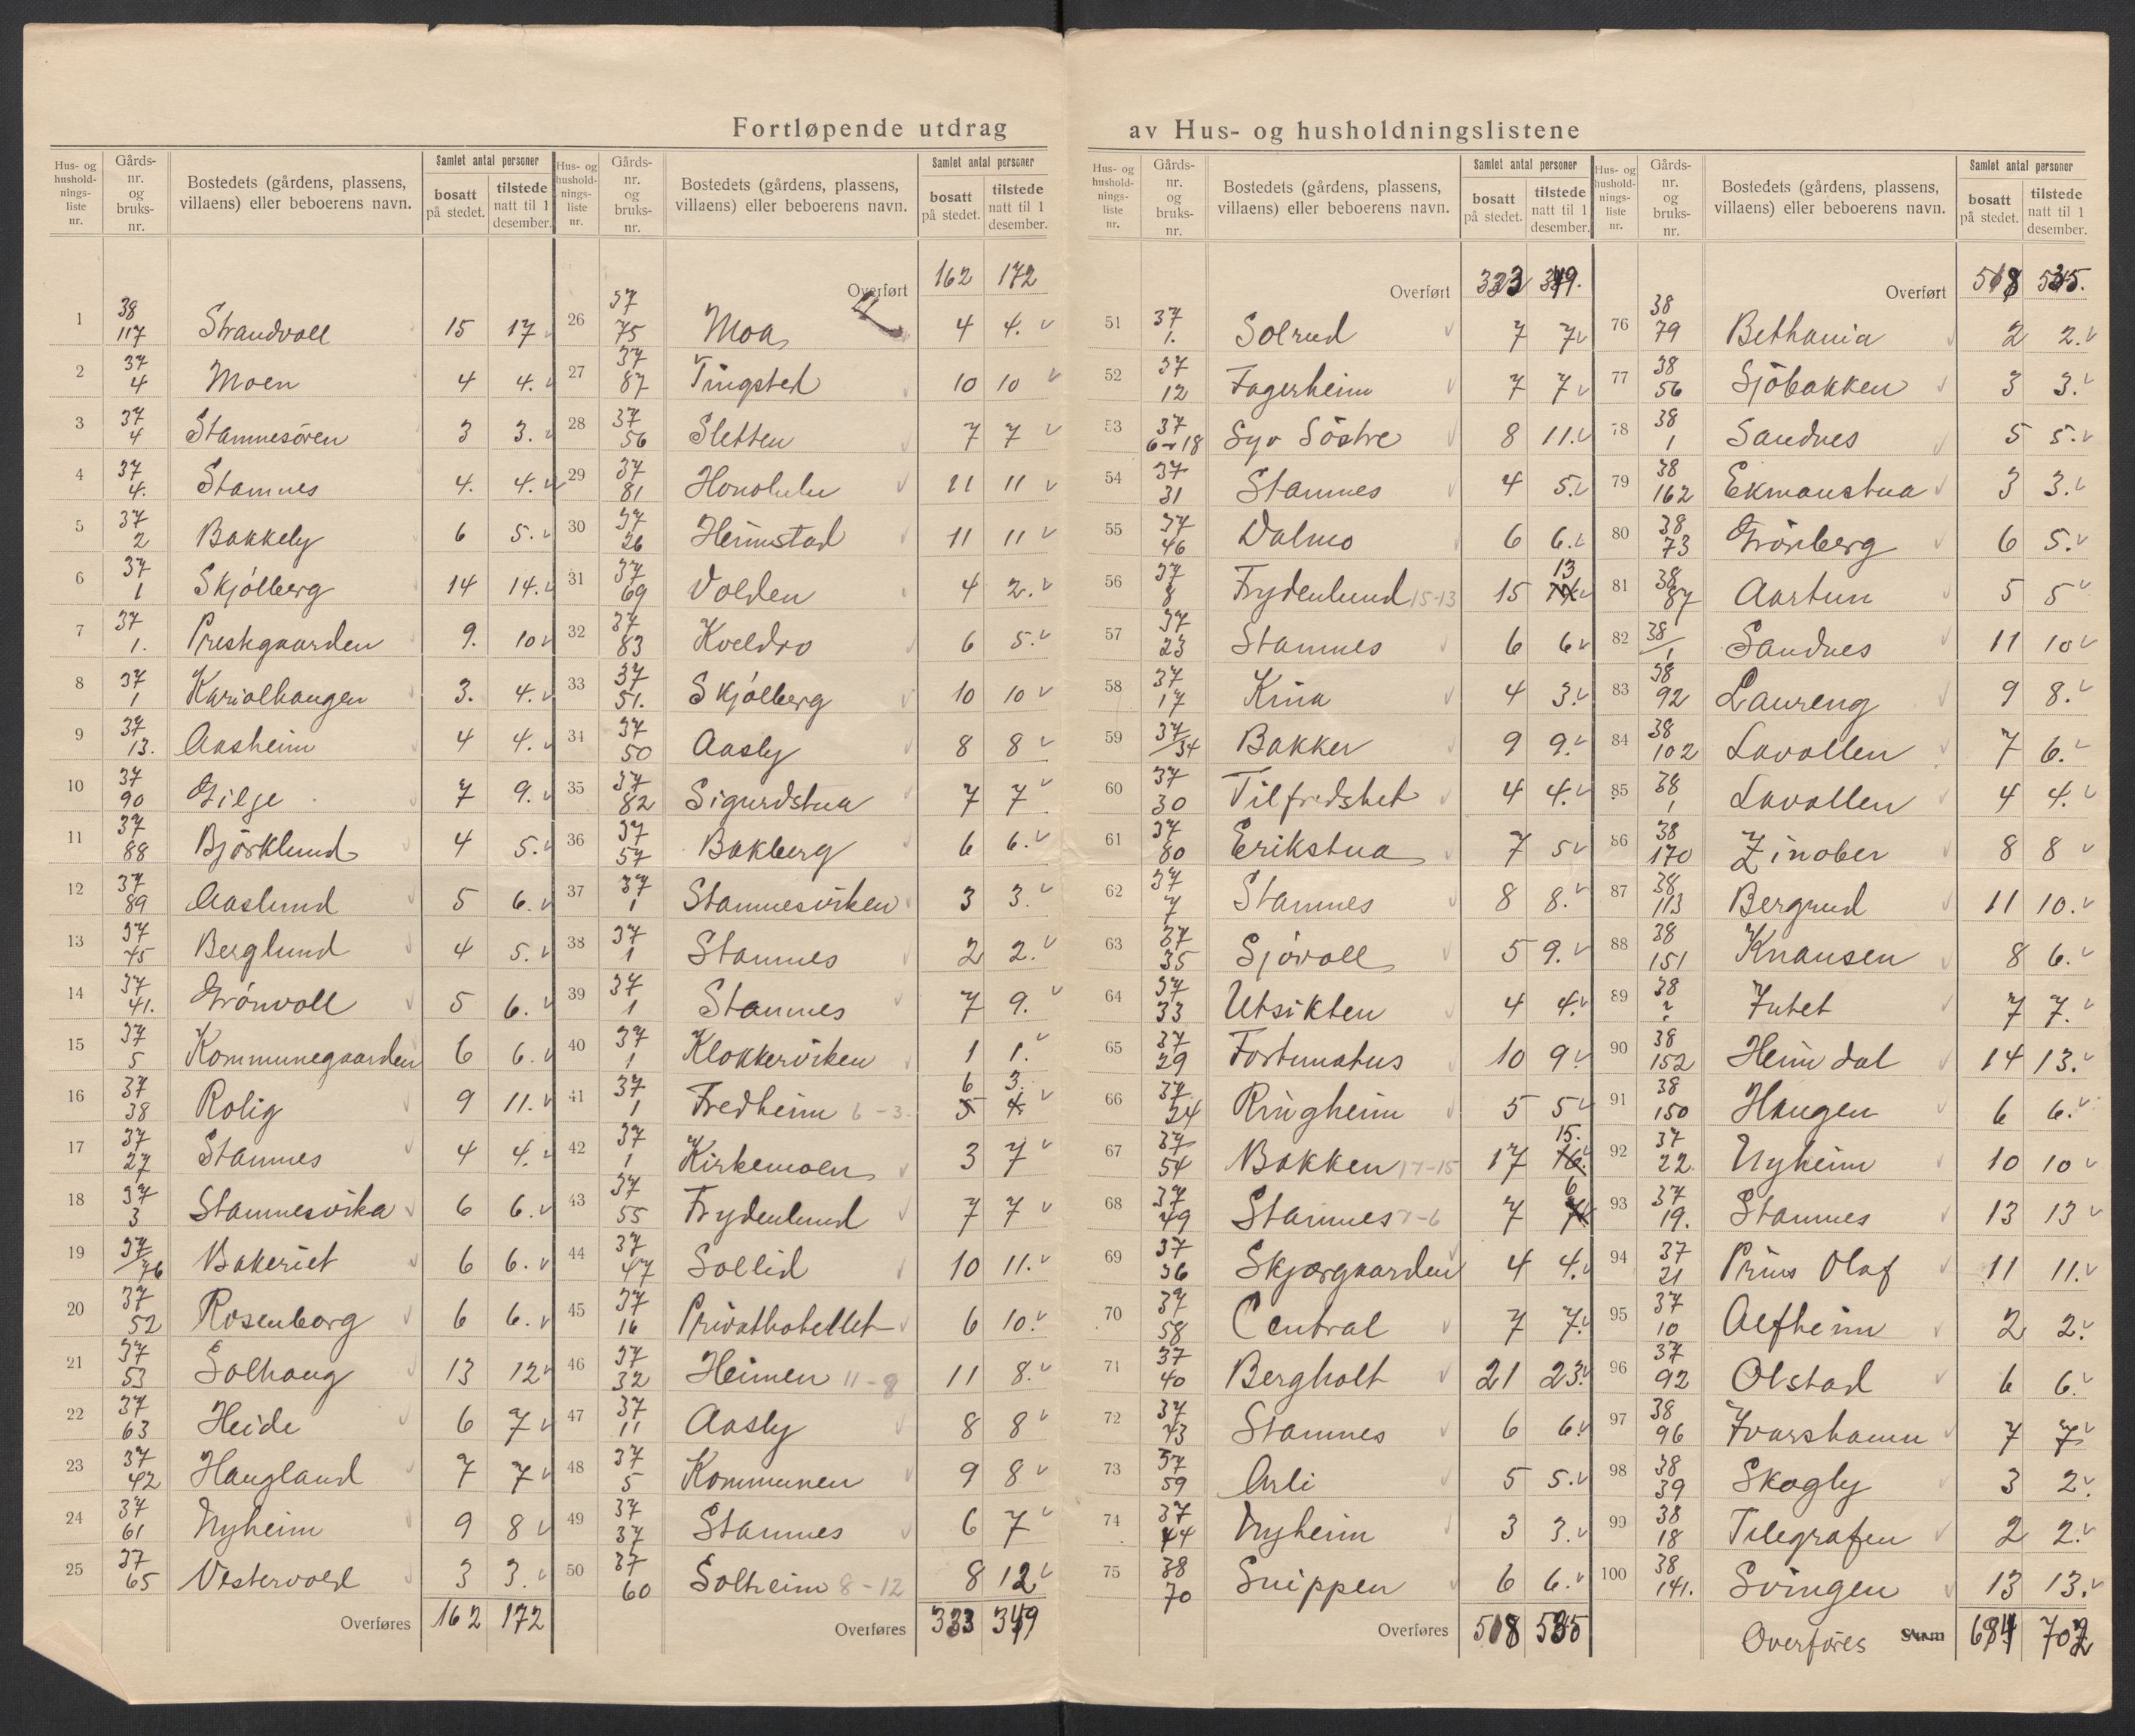 Fortløpende utdrag av Hus- og husholdningslistene
Hus- og husholdningsliste nr. | Gårdsnr. og bruksnr. | Bostedets (gårdens, plassens, villaens) eller beboerens navn. | Samlet antal personer bosatt på stedet. | tilstede natt til 1 desember.
1 38/117 Strandvoll 15 17
2 37/4 Moen 4 4.
3 37/4 Stamnesören 3 3.
4 37/4. Stamnes 4. 4.
5 37/2 Bakkely 6 5.
6 37/1 Skjölberg 14 14.
7 37/1. Prestgaarden 9. 10
8 37/1 Karialhaugen 3. 4.
9 37/13. Aasheim 4 4.
10 37/90 Gilje 7 9.
11 37/88 Björklund 4 5.
12 37/89 Aaslund 5 6.
13 37/45 Berglund 4 5.
14 37/41. Grönvoll 5 6.
15 37/5 Kommunegaarden 6 6.
16 37/38 Rolig 9 11.
17 37/27 Stamnes 4 4.
18 37/3 Stamnesvika 6 6.
19 37/76 Bakeriet 6 6.
20 37/52 Rosenborg 6 6.
21 37/53 Solhaug 13 12
22 37/63 Heide 6 7
23 37/42 Haugland 7 7
24 37/61 Nyheim 9 8
25 37/65 Vestervold 3 3.
Overføres 162 172
Hus- og husholdningsliste nr. | Gårdsnr. og bruksnr. | Bostedets (gårdens, plassens, villaens) eller beboerens navn. | Samlet antal personer bosatt på stedet. | tilstede natt til 1 desember.
Overført 162 172
26 37/75 Moa 4 4.
27 37/87 Tingsted 10 10
28 37/56 Sletten 7 7
29 37/81 Honolulu 11 11
30 37/26 Heimstad 11 11
31 37/69 Volden 4 2.
32 37/83 Kveldro 6 5.
33 37/51. Skjölberg 10 10
34 37/50 Aasly 8 8
35 37/82 Sigurdstua 7 7
36 37/57 Bakberg 6 6.
37 37/1 Stamnesviken 3 3.
38 37/1 Stamnes 2 2.
39 37/1 Stamnes 7 9.
40 37/1 Klokkerviken 1 1.
41 37/1 Fredheim 6-3. 6 3. 5 4.
42 37/1 Kirkemoen 3 7
43 37/55 Frydenlund 7 7
44 37/47 Sollid 10 11.
45 37/16 Privathotellet 6 10.
46 37/32 Heimen 11-8 11 8.
47 37/11 Aasly 8 8
48 37/5 Kommunen 9 8
49 37/37 Stamnes 6 7
50 37/60 Solheim 8-12 8 12
Overføres 333 349
Hus- og husholdningsliste nr. | Gårdsnr. og bruksnr. | Bostedets (gårdens, plassens, villaens) eller beboerens navn. | Samlet antal personer bosatt på stedet. | tilstede natt til 1 desember.
Overført 333 349.
51 37/1. Solrud 7 7
52 37/12 Fagerheim 7 7
53 37/6-18 Syv Söstre 8 11.
54 37/31 Stamnes 4 5.
55 37/46 Dalmo 6 6.
56 37/8 Frydenlund 15-13 15 13 14
57 37/23 Stamnes 6 6
58 37/17 Kina 4 3.
59 37/34 Bakker 9 9.
60 37/30 Tilfredshet 4 4.
61 37/80 Erikstua 7 5
62 37/7 Stamnes 8 8.
63 37/35 Sjövoll 5 9.
64 37/33 Utsikten 4 4.
65 37/29 Fortunatus 10 9.
66 37/24 Ringheim 5 5
67 37/54 Bakken 17-15 17 15. 16.
68 37/49 Stamnes 7-6 7 6 7
69 37/36 Skjærgaarden 4 4.
70 37/58 Central 7 7.
71 37/40 Bergholt 21 23.
72 37/43 Stamnes 6 6.
73 37/59 Arli 5 5.
74 37/44 Nyheim 3 3.
75 38/70 Snippen 6 6.
Overføres 518 535
Hus- og husholdningsliste nr. | Gårdsnr. og bruksnr. | Bostedets (gårdens, plassens, villaens) eller beboerens navn. | Samlet antal personer bosatt på stedet. | tilstede natt til 1 desember.
Overført 518 535.
76 38/79 Bethania 2 2.
77 38/56 Sjöbakken 3 3.
78 38/1 Sandnes 5 5.
79 38/162 Ekmanstua 3 3.
80 38/73 Grönberg 6 5.
81 38/87 Aartun 5 5
82 38/1 Sandnes 11 10
83 38/92 Laureng 9 8.
84 38/102 Lavollen 7 6.
85 38/1 Lavollen 4 4.
86 38/170 Zinober 8 8
87 38/113 Bergrud 11 10.
88 38/151 Knausen 8 6.
89 38/? Jutet 7 7.
90 38/152 Heimdal 14 13.
91 38/150 Haugen 6 6.
92 37/22 Nyheim 10 10
93 37/19. Stamnes 13 13
94 37/21 Prins Olaf 11 11.
95 37/10 Alfheim 2 2.
96 37/92 Olstad 6 6.
97 38/96 Ivarshamn 7 7
98 38/39 Skogly 3 2.
99 38/18 Telegrafen 2 2.
100 38/141. Svingen 13 13.
Overføres Sum 684 702